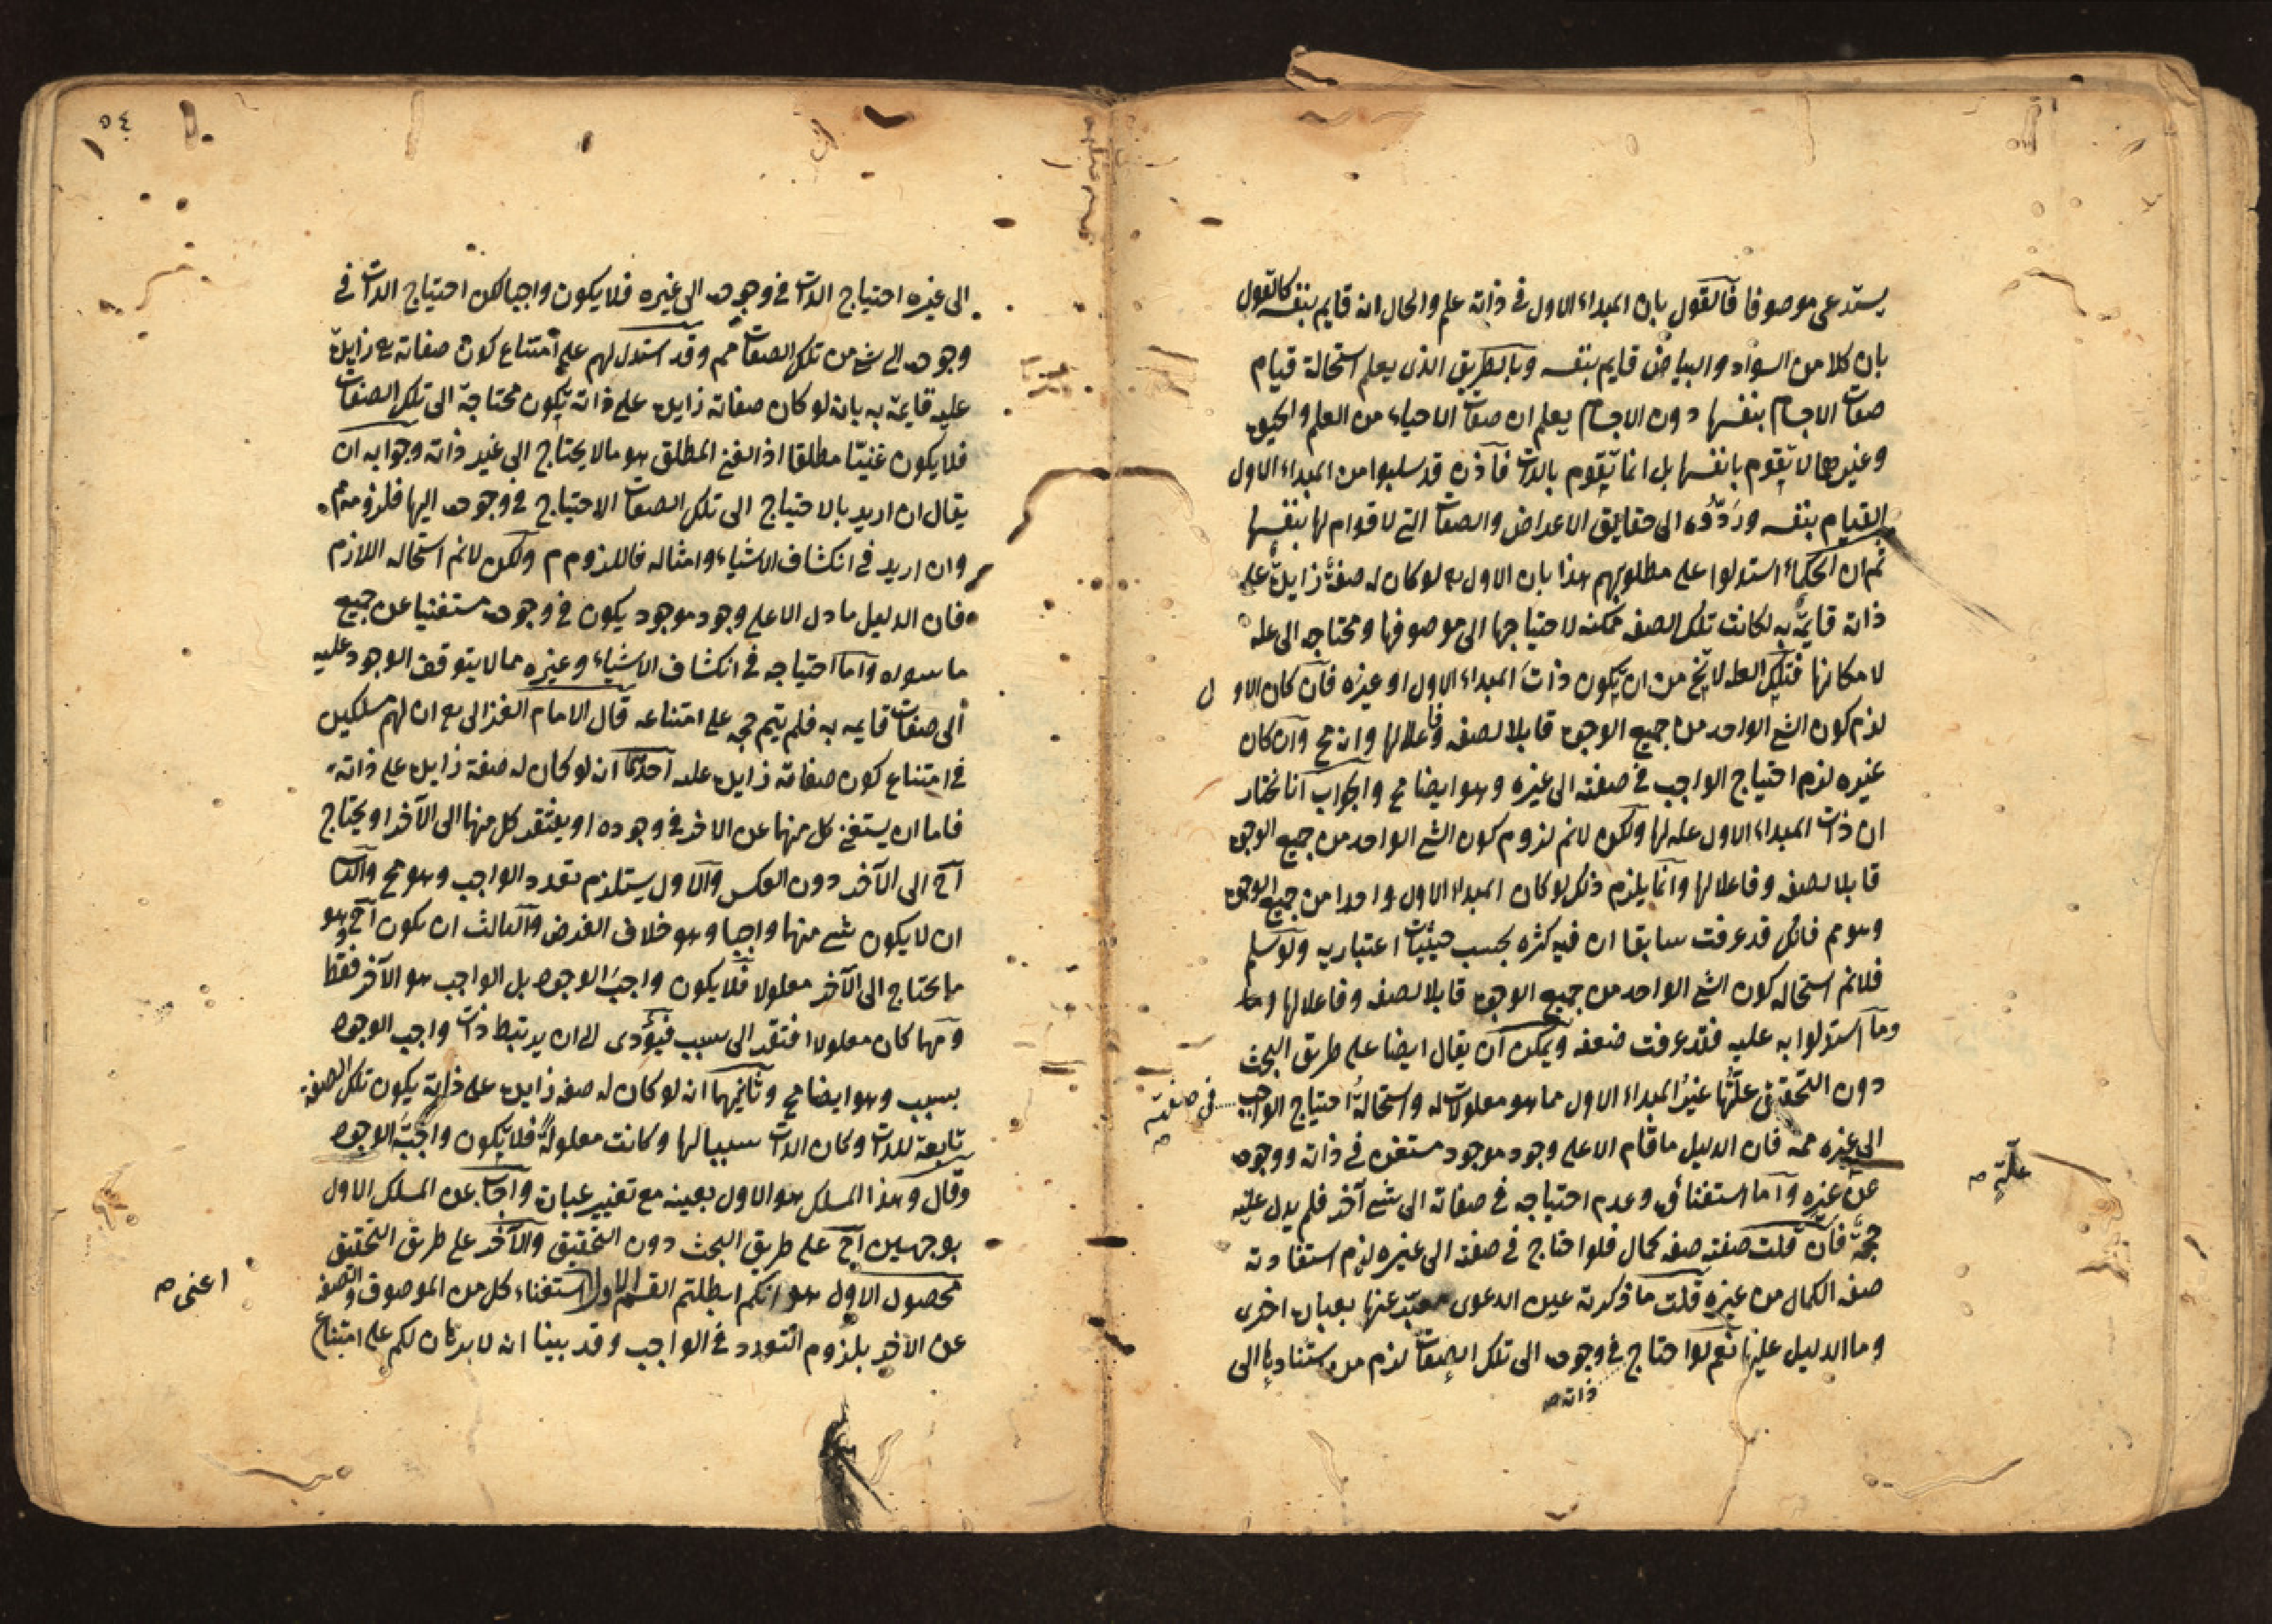 يستدعى موصوفا فالقول بان المبداء الاول فى ذاته علم والحال انه قايم بنفسه كالقول
بان كلا من السواد والبياض قايم بنفسه وبالطريق الذى يعلم استحالة قيام
صفات الاجسام بنفسها دون الاجسام يعلم ان صفات الاحياء من العلم والحيوة
وغيرهما لا يقوم بانفسها بل انما يقوم بالذات فاذن قد سلبوا من المبداء الاول
القيام بنفسه وردوه الى حقايق الاعراض والصفات التى لا قوام لها بنفسها
ثم ان الحكماء استدلوا على مطلوبهم هذا بان الاول تع لو كان له صفة زايدة على
ذاته قايمة به لكانت تلك الصفه ممكنه لاحتياجها الى موصوفها ومحتاجه الى عله
لامكانها فتلك العله لا يخ من ان يكون ذات المبداء الاول او غيره فان كان الاول
لزم كون الشئ الواحد من جميع الوجوه قابلا لصفه وفاعلا لها وانه مح وان كان
غيره لزم احتياج الواجب فى صفته الى غيره وهو ايضا مح والجواب انا نختار
ان ذات المبداء الاول عله لها ولكن لانم لزوم كون الشئ الواحد من جميع الوجوه
قابلا لصفه وفاعلا لها وانما يلزم ذلك لو كان المبداء الاول واحدا من جميع الوجوه
وهو مم فانك قد عرفت سابقا ان فيه كثره بحسب حيثيات اعتباريه ولو سلم
فلانم استحاله كون الشئ الواحد من جميع الوجوه قابلا لصفه وفاعلا لها وما
وما استدلوا به عليه فقد عرفت ضعفه ويمكن ان يقال ايضا على طريق البحث
دون التحقيق علتها غير المبداء الاول مما هو معلولات له واستحالة احتياج الواجب
فى صفته
الى غيره ممه فان الدليل ما قام الا على وجود موجود مستغن فى ذاته ووجوده
علة
عن غيره واما استغنائه وعدم احتياجه فى صفاته الى شئ آخر فلم يدل عليه
حجة فان قلت صفته صفه كمال فلو احتاج فى صفته الى غيره لزم استفادته
صفه الكمال من غيره قلت ما ذكرته عين الدعوى معبر عنها بعبارة اخرى
وما الدليل عليها نعم لو احتاج فى وجوده الى تلك الصفات لزم من استنادها الى
ذاته
١٥٤
الى غيره احتياج الذات فى وجوده الى غيره فلا يكون واجبا لكن احتياج الذات فى
وجوده الى شئ من تلك الصفات مم وقد استدل لهم على امتناع كون صفاته تع زايدة
عليه قايمة به بانه لو كان صفاته زايدة على ذاته يكون محتاجة الى تلك الصفات
فلا يكون غنيا مطلقا اذ الغنى المطلق هو ما لا يحتاج الى غير ذاته وجوابه ان
يقال ان اريد بالاحتياج الى تلك الصفات الاحتياج فى وجوده اليها فلزومه مم
وان اريد فى انكشاف الاشياء وامثاله فاللزوم م ولكن لانم استحاله اللازم
فان الدليل ما دل الا على وجود موجود يكون فى وجوده مستغنيا عن جميع
ما سواه واما احتياجه فى انكشاف الاشياء وغيره مما لا يتوقف الوجود عليه
الى صفات قايمه به فلم يتم حجه على امتناعه قال الامام الغزالى مع ان لهم مسلكين
فى امتناع كون صفاته زايدة عليه احدهما انه لو كان له صفة زايدة على ذاته
فاما ان يستغنى كل منهما عن الاخر فى وجوده او يفتقر كل منهما الى الآخر او يحتاج
آح الى الآخر دون العكس والاول يستلزم تعدد الواجب وهو مح والثانى
ان لا يكون شئ منهما واجبا وهو خلاف الفرض والثالث ان يكون آح وهو
ما يحتاج الى الآخر معلولا فلا يكون واجب الوجود بل الواجب هو الآخر فقط
ومهما كان معلولا افتقر الى سبب فيؤدى الى ان يرتبط ذات واجب الوجود
بسبب وهو ايضا مح وثانيهما انه لو كان له صفه زايدة على ذاته يكون تلك الصفة
تابعة للذات وكان الذات سببا لها وكانت معلولة فلا يكون واجبة الوجود
وقال وهذا المسلك هو الاول بعينه مع تغيير عبارة واجاب عن المسلك الاول
بوجهين آح على طريق البحث دون التحقيق والآخر على طريق التحقيق
محصول الاول هو انكم ابطلتم القسم الاول استغناء كل من الموصوف والصفه
اعنى
عن الآخر بلزوم التعدد فى الواجب وقد بينا انه لا برهان لكم على امتناع